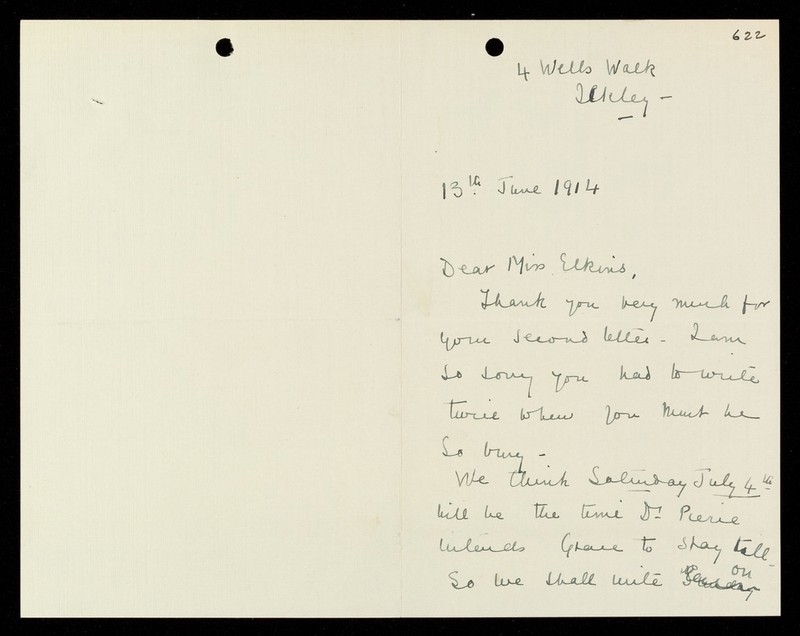 622
4 Wells Walk
Ilkley -
13th June 1914
Dear Miss Elkins,
Thank you very much for
your second letter - I am
so sorry you had to write
twice when you must be
so busy -
We think Saturday July 4th
will be the time Dr Pierie
intends Grace to stay till -
So we shall write on